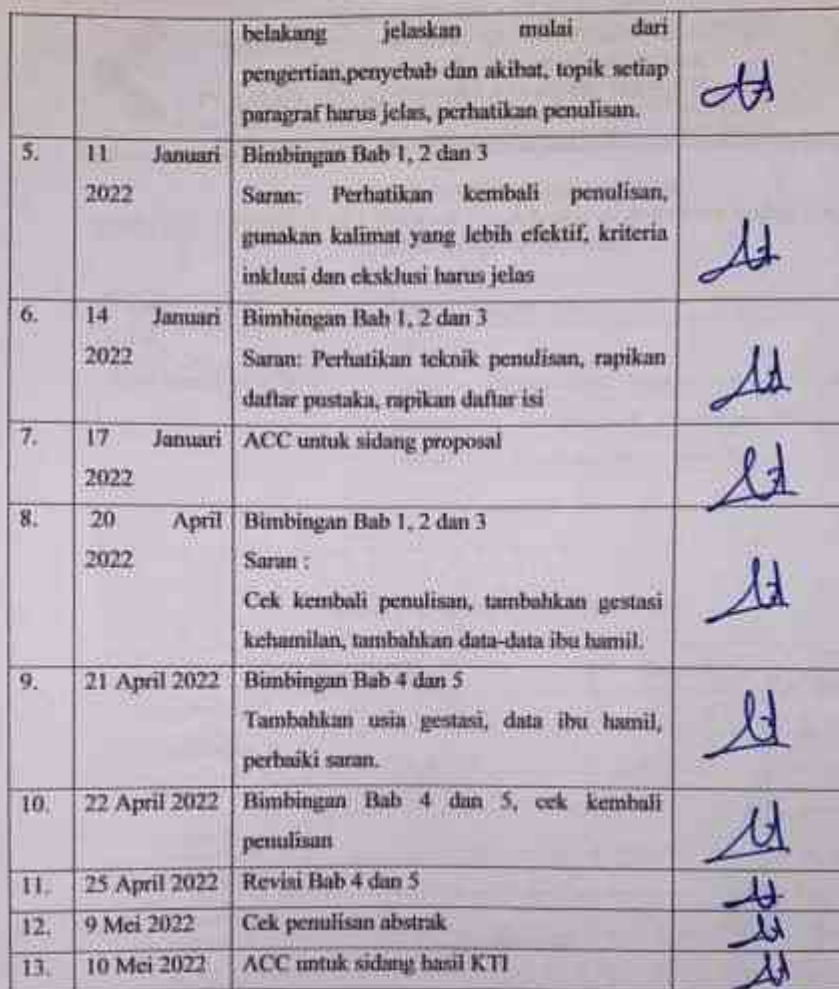 belakang jelaskan mulai dari
pengertian,penyebab dan akibat, topik setiap
paragraf harus jelas, perhatikan penulisan.
5. 11 Januari Bimbingan Bab 1, 2 dan 3
2022 Saran: Perhatikan kembali penulisan,
gunakan kalimat yang lebih efektif, kriteria
inklusi dan eksklusi harus jelas
6. 14 Januari Bimbingan Bab 1, 2 dan 3
2022 Saran: Perhatikan teknik penulisan, rapikan
daftar pustaka, rapikan daftar isi
7. 17 Januari ACC untuk sidang proposal
2022
8. 20 April Bimbingan Bab 1, 2 dan 3
2022 Saran :
Cek kembali penulisan, tambahkan gestasi
kehamilan, tambahkan data-data ibu hamil.
9. 21 April 2022 Bimbingan Bab 4 dan 5
Tambahkan usia gestasi, data ibu hamil,
perbaiki saran.
10. 22 April 2022 Bimbingan Bab 4 dan 5, cek kembali
penulisan
11. 25 April 2022 Revisi Bab 4 dan 5
12. 9 Mei 2022 Cek penulisan abstrak
13. 10 Mei 2022 ACC untuk sidang hasil KTI